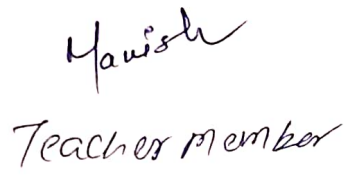 Manish
Teacher member